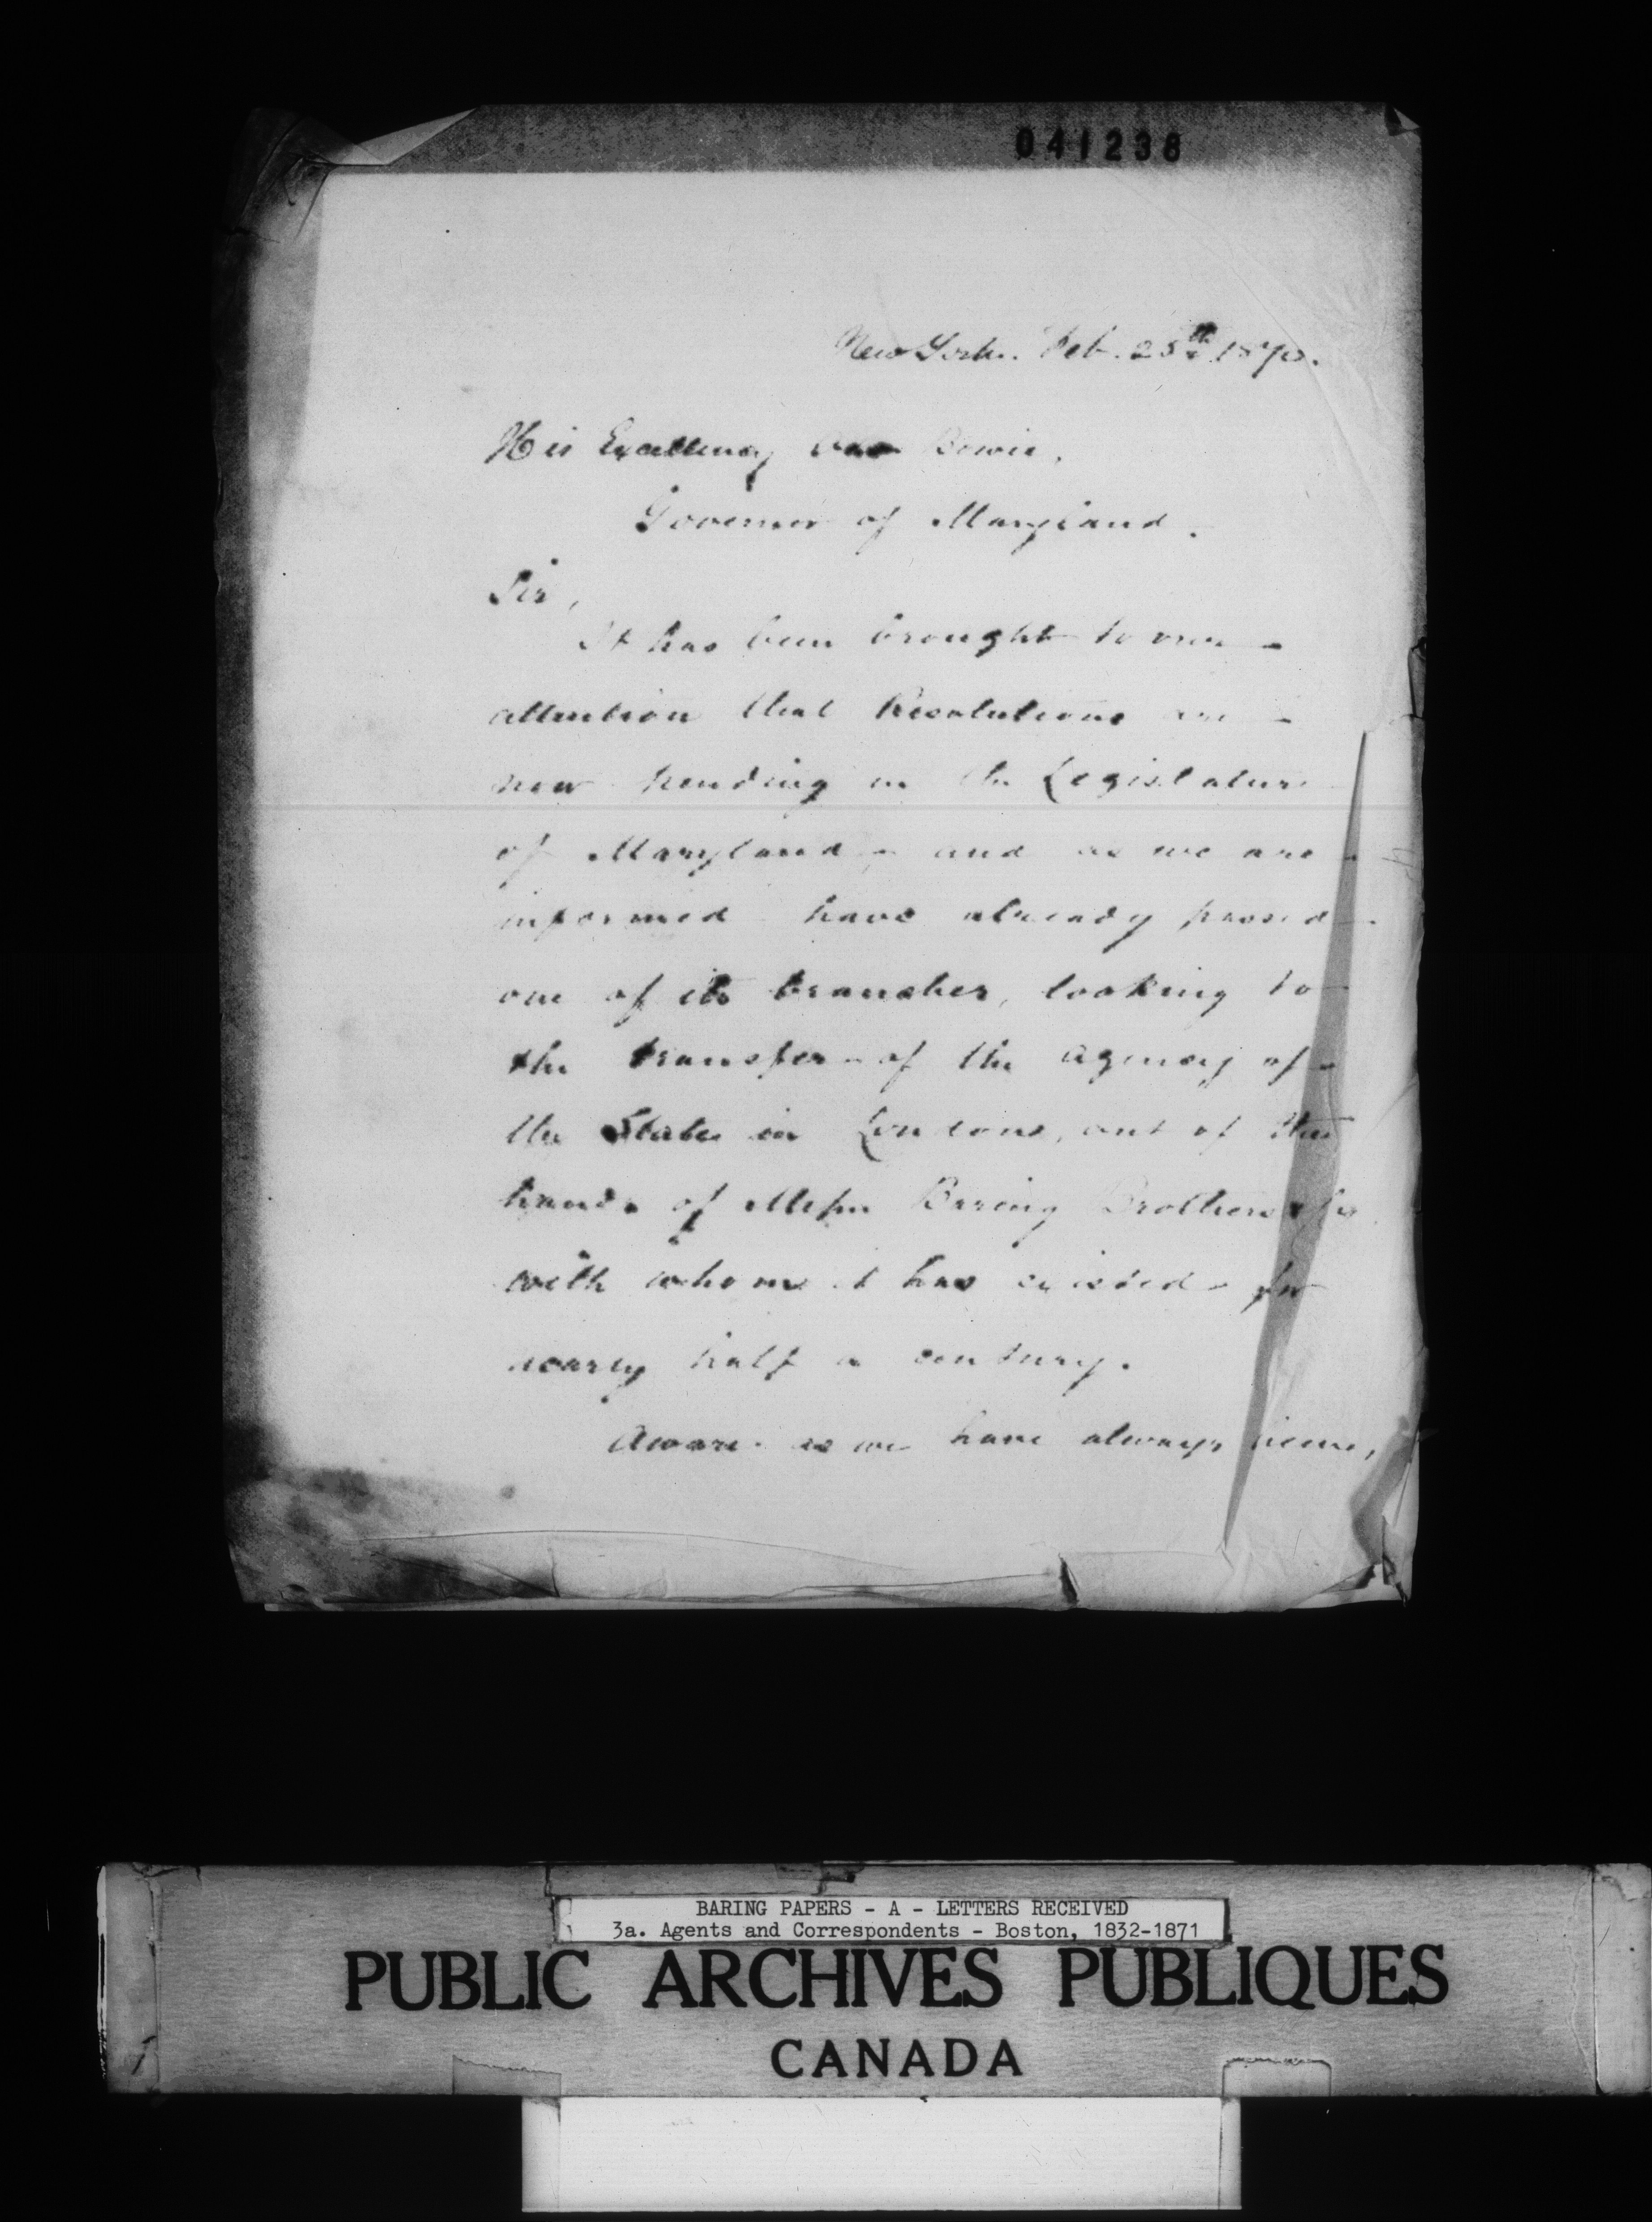 041238
New York. Feb. 25th 1870.
His Excellency Bowie,
Governor of Maryland.
Sir,
It has been brought to our
attention that Resolutions are
now pending in the Legislature
of Maryland - and as we are
informed have already passed
one of its branches, looking to
the transfer - of the agency of
the State in London, out of the
hands of Messrs Baring Brothers & Co
with whom it has existed - for
nearly half a century.
Aware as we have always been,
BARING PAPERS - A - LETTERS RECEIVED
3a. Agents and Correspondents - Boston, 1832-1871
PUBLIC ARCHIVES PUBLIQUES
CANADA